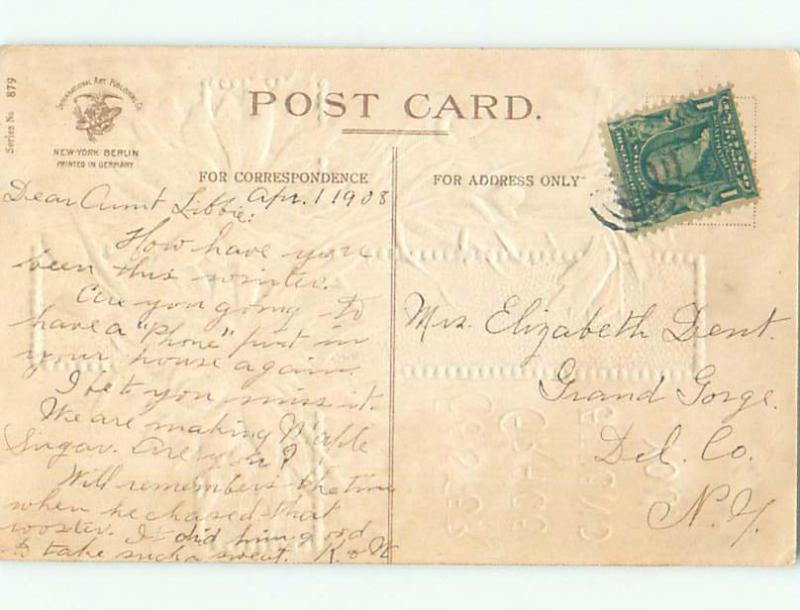 Series No 879
INTERNATIONAL ART PUBLISHING CO.
NEW-YORK BERLIN
PRINTED IN GERMANY
POST CARD.
FOR CORRESPONDENCE
FOR ADDRESS ONLY
1 1
Apr. 1 1908
Dear Aunt Libbie:
How have you
been this winter.
Are you going to
have a "phone" put in
your house again.
I bet you miss it.
We are making Maple
Sugar. Are you?
Will remembers the time
when he chased that
rooster. It did him good
to take such a sweat. K. & W
Mrs. Elizabeth Dent.
Grand Gorge.
Del. Co.
N.Y.